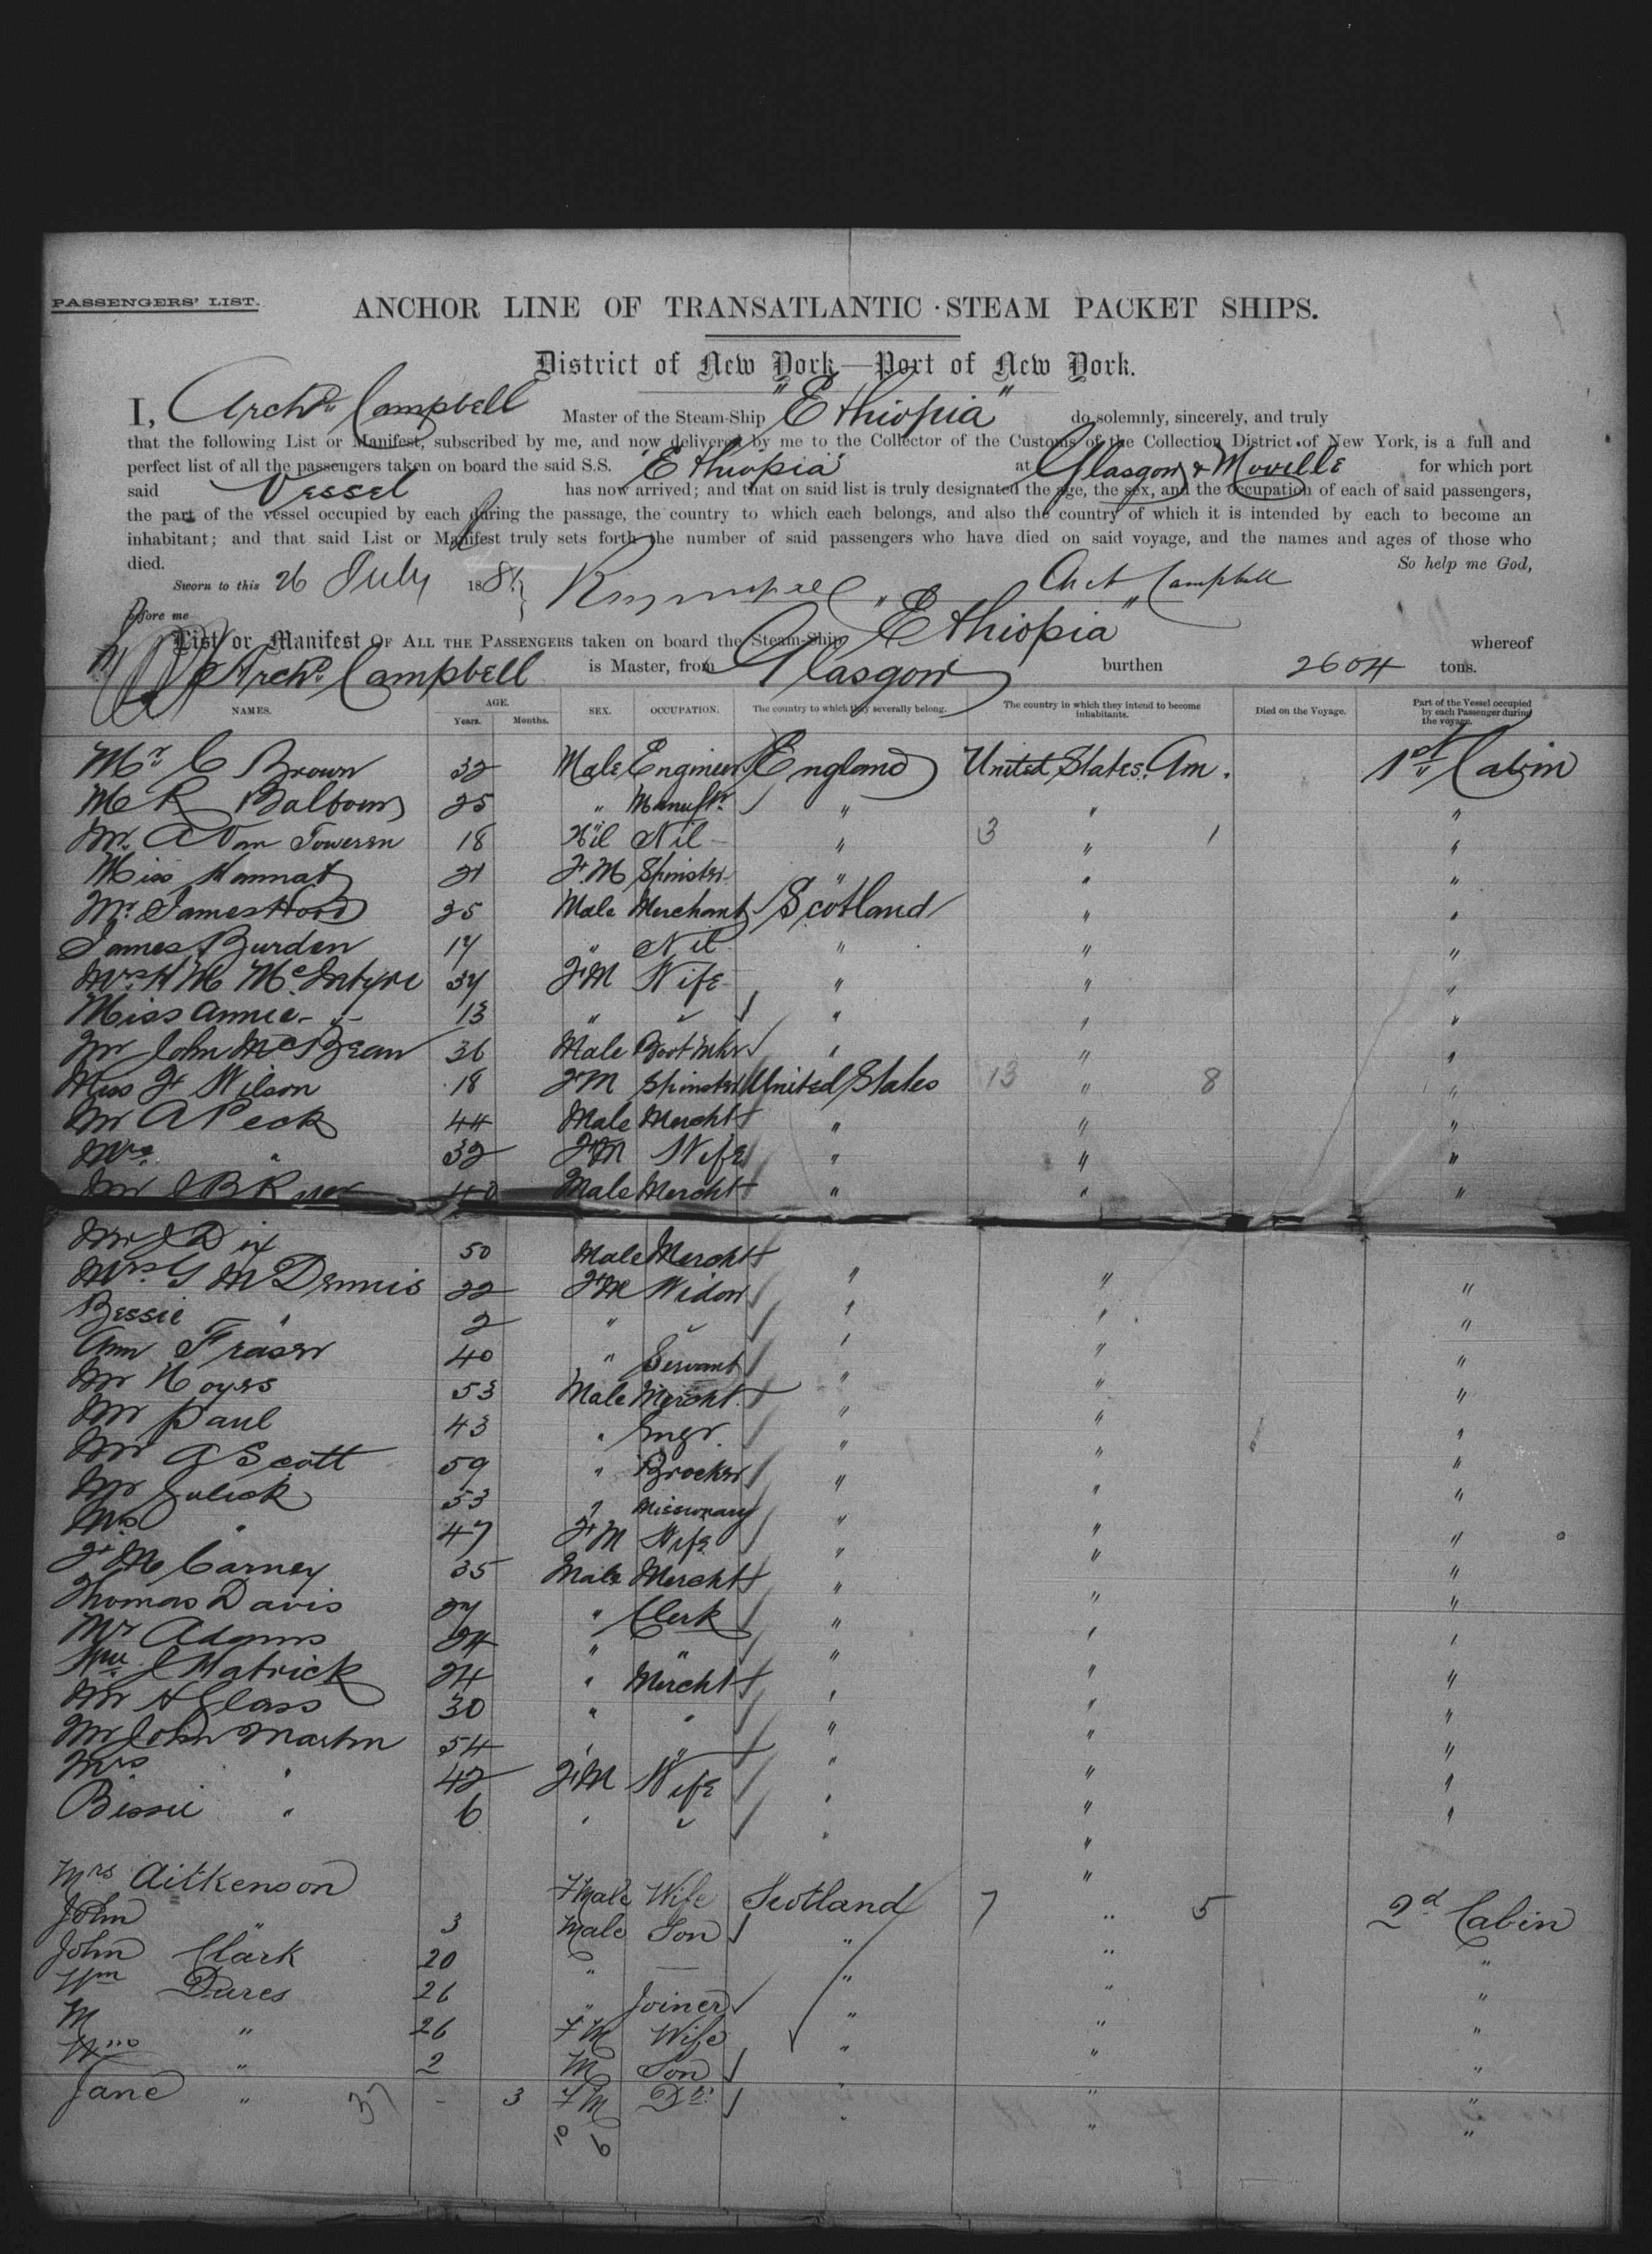 PASSENGERS' LIST.
ANCHOR LINE OF TRANSATLANTIC STEAM PACKET SHIPS.
District of New York—Port of New York.
I, Archd. Campbell Master of the Steam-Ship "Ethiopia" do solemnly, sincerely, and truly
that the following List or Manifest, subscribed by me, and now delivered by me to the Collector of the Customs of the Collection District of New York, is a full and
perfect list of all the passengers taken on board the said S.S. "Ethiopia" at Glasgow & Moville for which port
said Vessel has now arrived; and that on said list is truly designated the age, the sex, and the occupation of each of said passengers,
the part of the vessel occupied by each during the passage, the country to which each belongs, and also the country of which it is intended by each to become an
inhabitant; and that said List or Manifest truly sets forth the number of said passengers who have died on said voyage, and the names and ages of those who
died. So help me God,
Sworn to this 26 July 188 Archd Campbell
before me
List or Manifest OF ALL THE PASSENGERS taken on board the Steam-Ship "Ethiopia" whereof
Archd. Campbell is Master, from Glasgow burthen 2604 tons.
NAMES. AGE. Years. Months. SEX. OCCUPATION. The country to which they severally belong. The country in which they intend to become inhabitants. Died on the Voyage. Part of the Vessel occupied by each Passenger during the voyage.
Mr C Brown 32 Male Engineer England United States Am. 1st Cabin
M R Balfour 25 " Manuftr " " "
Mr. A Van Toweren 18 Nil Nil " 3 " 1 "
Miss Hannat 21 F.M Spinster " " "
Mr James Hood 25 Male Merchant Scotland " "
James Burden 17 " Nil " " "
Mrs H M McIntyre 34 F.M Wife " " "
Miss Annie " 13 " " " " "
Mr John McBean 36 Male Boot Mkr " " "
Miss F Wilson 18 F.M Spinster United States 13 " 8 "
Mr A Peck 44 Male Mercht " " "
Mrs " 32 F.M Wife " " "
Mr J B 40 Male Mercht " " "
Mr J Dix 50 Male Mercht " " "
Mrs G M Dennis 22 F.M Widow " " "
Bessie " 2 " " " " "
Ann Fraser 40 " Servant " " "
Mr Noyes 53 Male Mercht. " " "
Mr Paul 43 " Engr. " " "
Mr A Scott 59 " Brocker " " "
Mr Gulick 53 " Missionary " " "
Mrs " 47 F.M Wife " " "
F M Carney 35 Male Mercht " " "
Thomas Davis 27 " Clerk " " "
Mr Adams 24 " " " " "
Wm J Hatrick 24 " Mercht " " "
Mr A Glass 30 " " " " "
Mr John Martin 54 " " " " "
Mrs " 42 F.M Wife " " "
Bessie " 6 " " " " "
Mrs Aitkenson FMale Wife Scotland 7 " 5 2d Cabin
John " 3 Male Son " " "
John Clark 20 " — " " "
Wm Dares 26 " Joiner " " "
M " 26 F M Wife " " "
Wm " 2 M Son " " "
Jane " 37 - 3 F M Dr. " " "
10 6